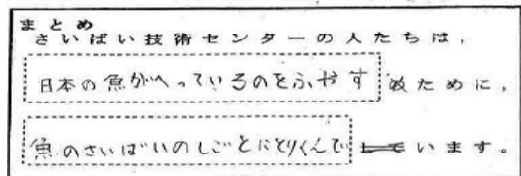 まとめ
さいばい技術センターの人たちは,
日本の魚がへっているのをふやす ために,
魚のさいばいのしごとにとりくんで います。